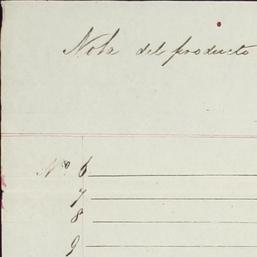 Nota del producto
Nos. 6
7
8
9